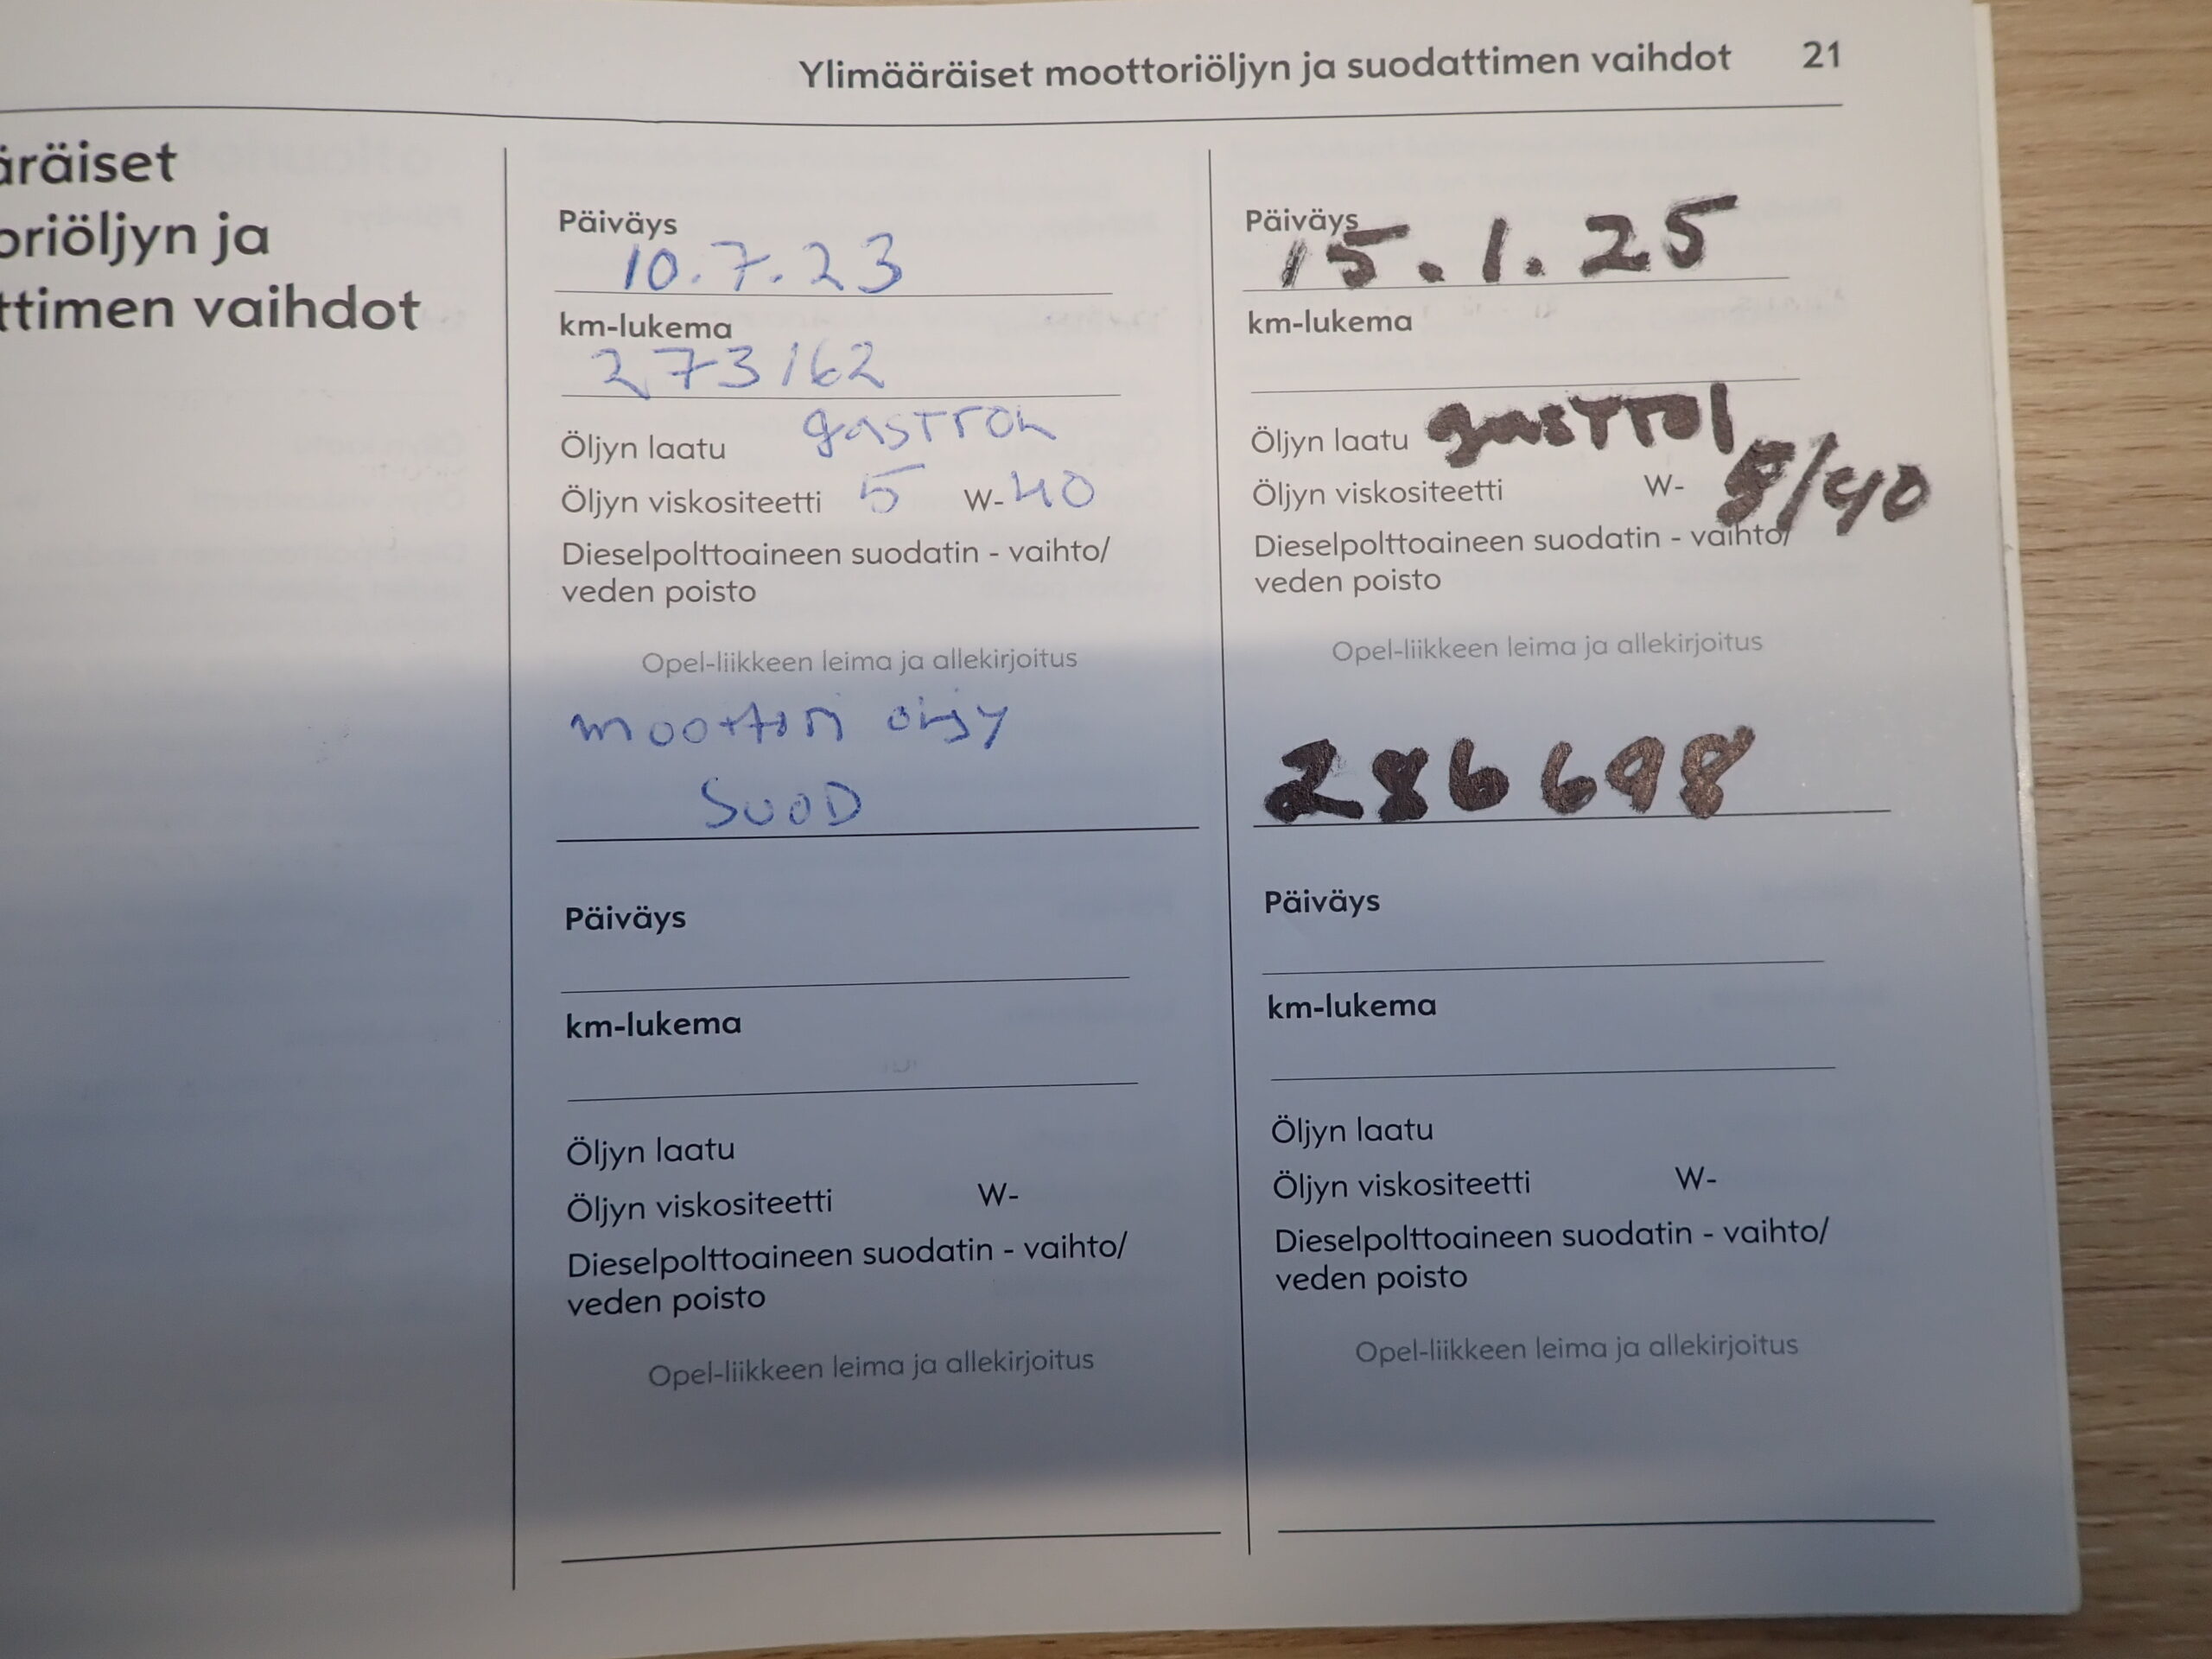 Ylimääräiset moottoriöljyn ja suodattimen vaihdot 21
äräiset
oriöljyn ja
ttimen vaihdot
Päiväys
10.7.23
km-lukema
273162
Öljyn laatu gastrol
Öljyn viskositeetti 5 W-40
Dieselpolttoaineen suodatin - vaihto/
veden poisto
Opel-liikkeen leima ja allekirjoitus
moottori öljy
SUOD
Päiväys
km-lukema
Öljyn laatu
Öljyn viskositeetti W-
Dieselpolttoaineen suodatin - vaihto/
veden poisto
Opel-liikkeen leima ja allekirjoitus
Päiväys
15.1.25
km-lukema
Öljyn laatu gastrol
Öljyn viskositeetti W- 5/40
Dieselpolttoaineen suodatin - vaihto/
veden poisto
Opel-liikkeen leima ja allekirjoitus
286698
Päiväys
km-lukema
Öljyn laatu
Öljyn viskositeetti W-
Dieselpolttoaineen suodatin - vaihto/
veden poisto
Opel-liikkeen leima ja allekirjoitus